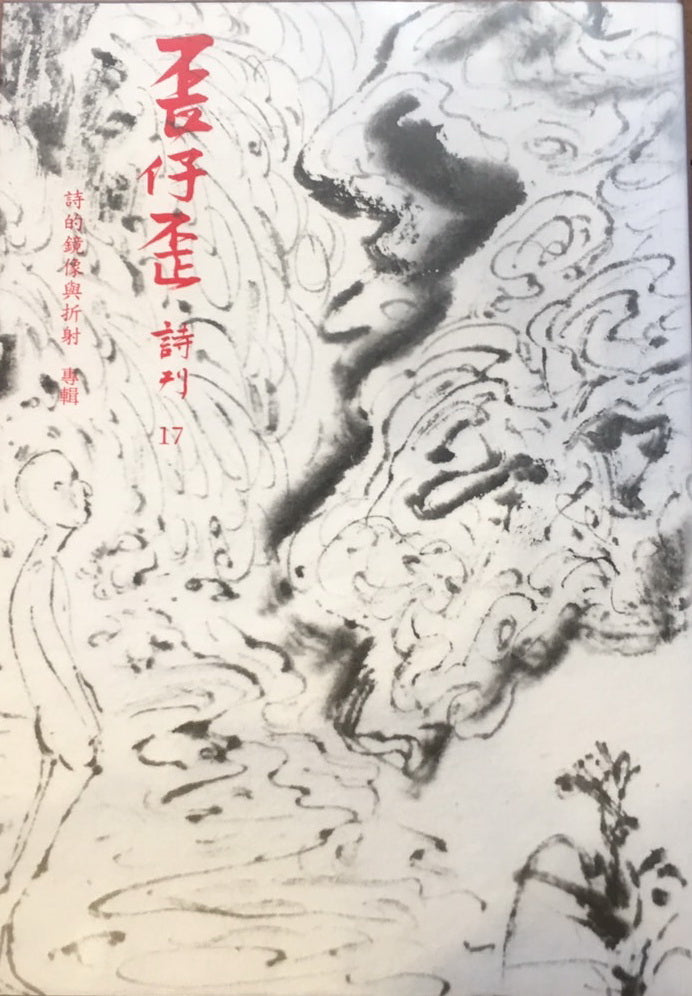 歪仔歪 詩刊 17
詩的鏡像與折射 專輯